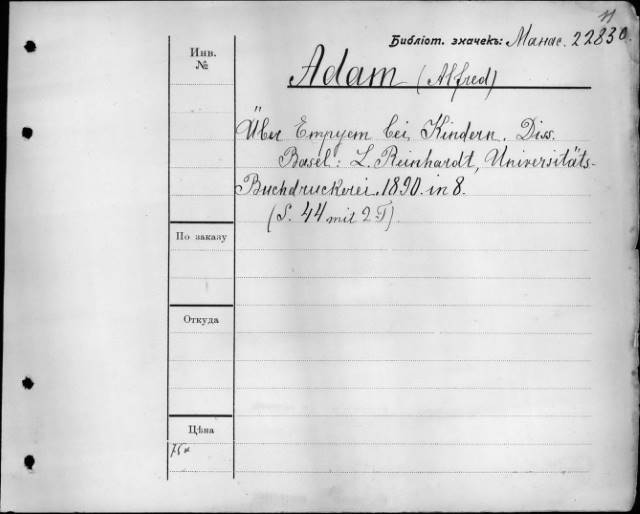 11
Библіот. значекъ: Манас. 22830.
Инв.
№
Adam (Alfred)
Über Empyem bei Kindern. Diss.
Basel: L. Reinhardt, Universitäts-
Buchdruckerei. 1890. in 8.
(S. 44 mit 2 T).
По заказу
Откуда
Цѣна